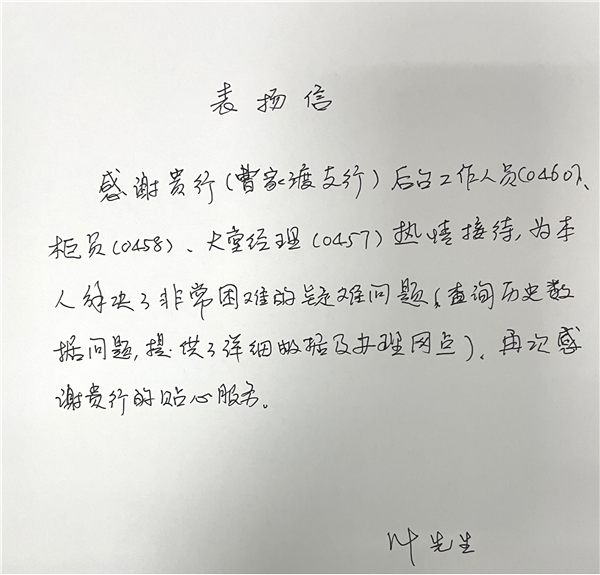 表扬信
感谢贵行(曹家渡支行)后台工作人员(0460)、
柜员(0458)、大堂经理(0457)热情接待,为本
人解决了非常困难的疑难问题(查询历史数
据问题,提供了详细数据及办理网点)。再次感
谢贵行的贴心服务。
叶先生